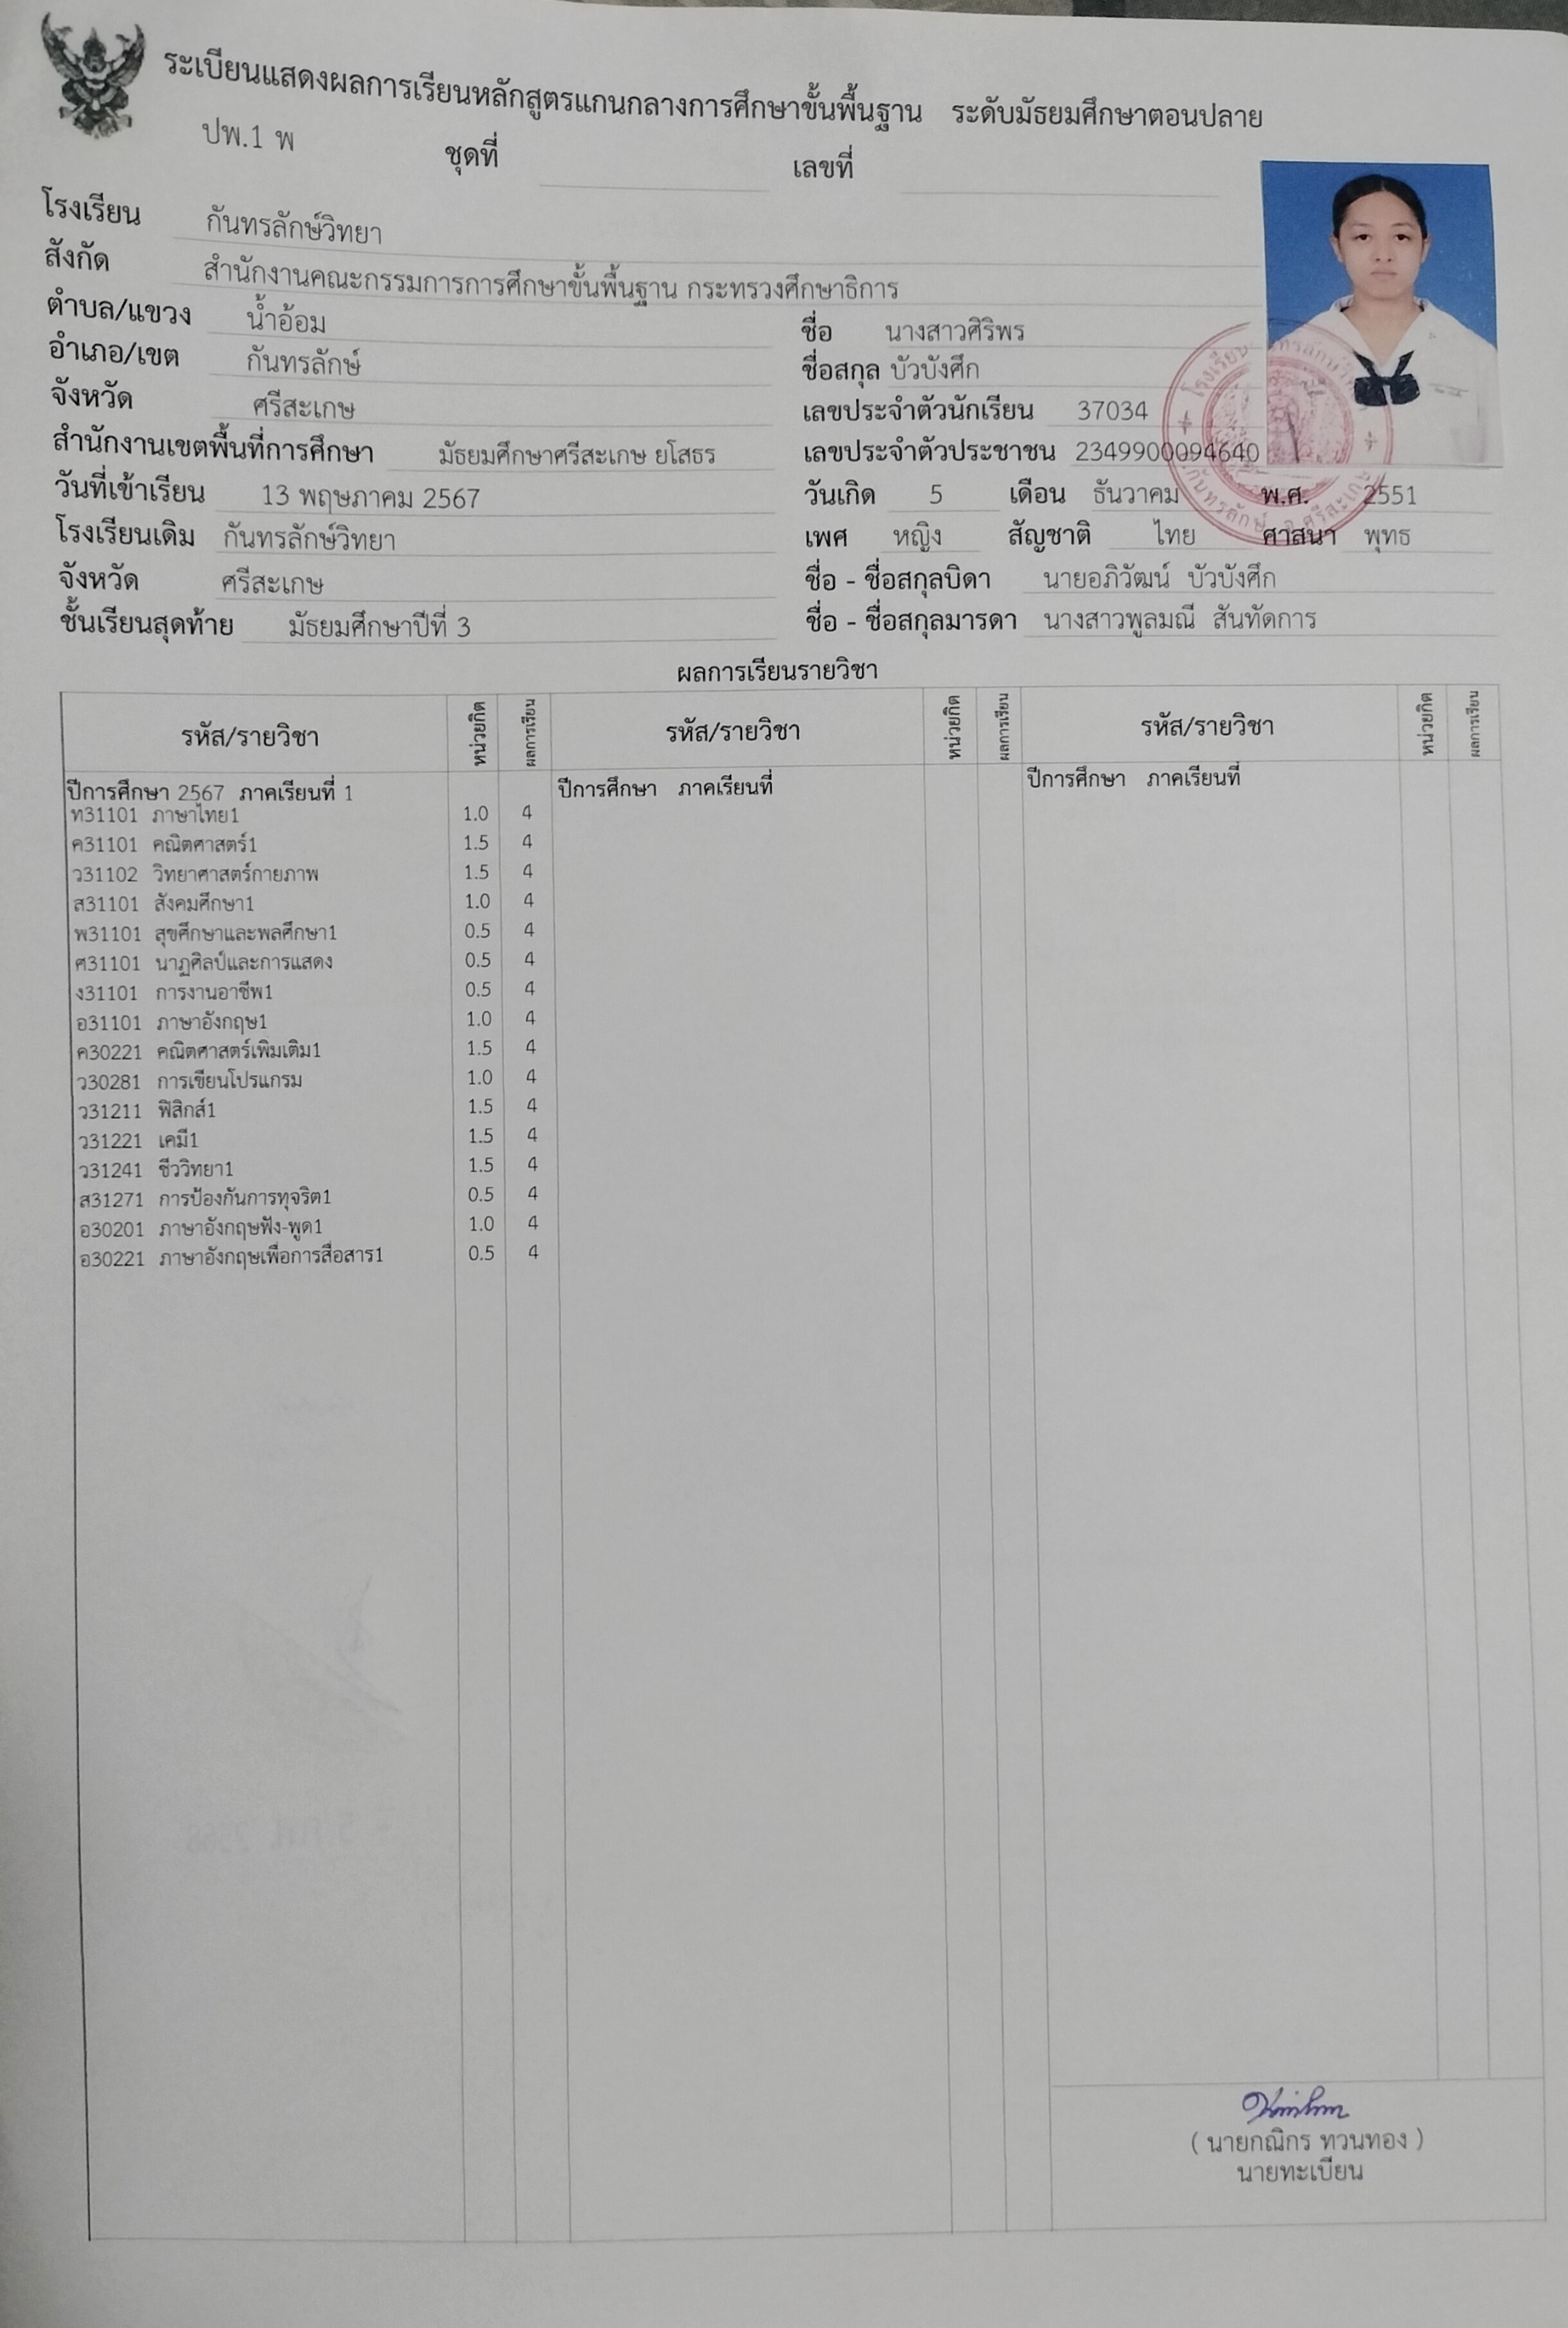 ระเบียนแสดงผลการเรียนหลักสูตรแกนกลางการศึกษาขั้นพื้นฐาน ระดับมัธยมศึกษาตอนปลาย
ปพ.1 พ ชุดที่ เลขที่
โรงเรียน กันทรลักษ์วิทยา
สังกัด สำนักงานคณะกรรมการการศึกษาขั้นพื้นฐาน กระทรวงศึกษาธิการ
ตำบล/แขวง น้ำอ้อม
อำเภอ/เขต กันทรลักษ์
จังหวัด ศรีสะเกษ
สำนักงานเขตพื้นที่การศึกษา มัธยมศึกษาศรีสะเกษ ยโสธร
วันที่เข้าเรียน 13 พฤษภาคม 2567
โรงเรียนเดิม กันทรลักษ์วิทยา
จังหวัด ศรีสะเกษ
ชั้นเรียนสุดท้าย มัธยมศึกษาปีที่ 3
ชื่อ นางสาวศิริพร
ชื่อสกุล บัวบังศึก
เลขประจำตัวนักเรียน 37034
เลขประจำตัวประชาชน 2349900094640
วันเกิด 5 เดือน ธันวาคม พ.ศ. 2551
เพศ หญิง สัญชาติ ไทย ศาสนา พุทธ
ชื่อ - ชื่อสกุลบิดา นายอภิวัฒน์ บัวบังศึก
ชื่อ - ชื่อสกุลมารดา นางสาวพูลมณี สันทัดการ
ผลการเรียนรายวิชา
รหัส/รายวิชา หน่วยกิต ผลการเรียน รหัส/รายวิชา หน่วยกิต ผลการเรียน รหัส/รายวิชา หน่วยกิต ผลการเรียน
ปีการศึกษา 2567 ภาคเรียนที่ 1 ปีการศึกษา ภาคเรียนที่ ปีการศึกษา ภาคเรียนที่
ท31101 ภาษาไทย1 1.0 4
ค31101 คณิตศาสตร์1 1.5 4
ว31102 วิทยาศาสตร์กายภาพ 1.5 4
ส31101 สังคมศึกษา1 1.0 4
พ31101 สุขศึกษาและพลศึกษา1 0.5 4
ศ31101 นาฏศิลป์และการแสดง 0.5 4
ง31101 การงานอาชีพ1 0.5 4
อ31101 ภาษาอังกฤษ1 1.0 4
ค30221 คณิตศาสตร์เพิ่มเติม1 1.5 4
ว30281 การเขียนโปรแกรม 1.0 4
ว31211 ฟิสิกส์1 1.5 4
ว31221 เคมี1 1.5 4
ว31241 ชีววิทยา1 1.5 4
ส31271 การป้องกันการทุจริต1 0.5 4
อ30201 ภาษาอังกฤษฟัง-พูด1 1.0 4
อ30221 ภาษาอังกฤษเพื่อการสื่อสาร1 0.5 4
( นายกณิกร ทวนทอง )
นายทะเบียน